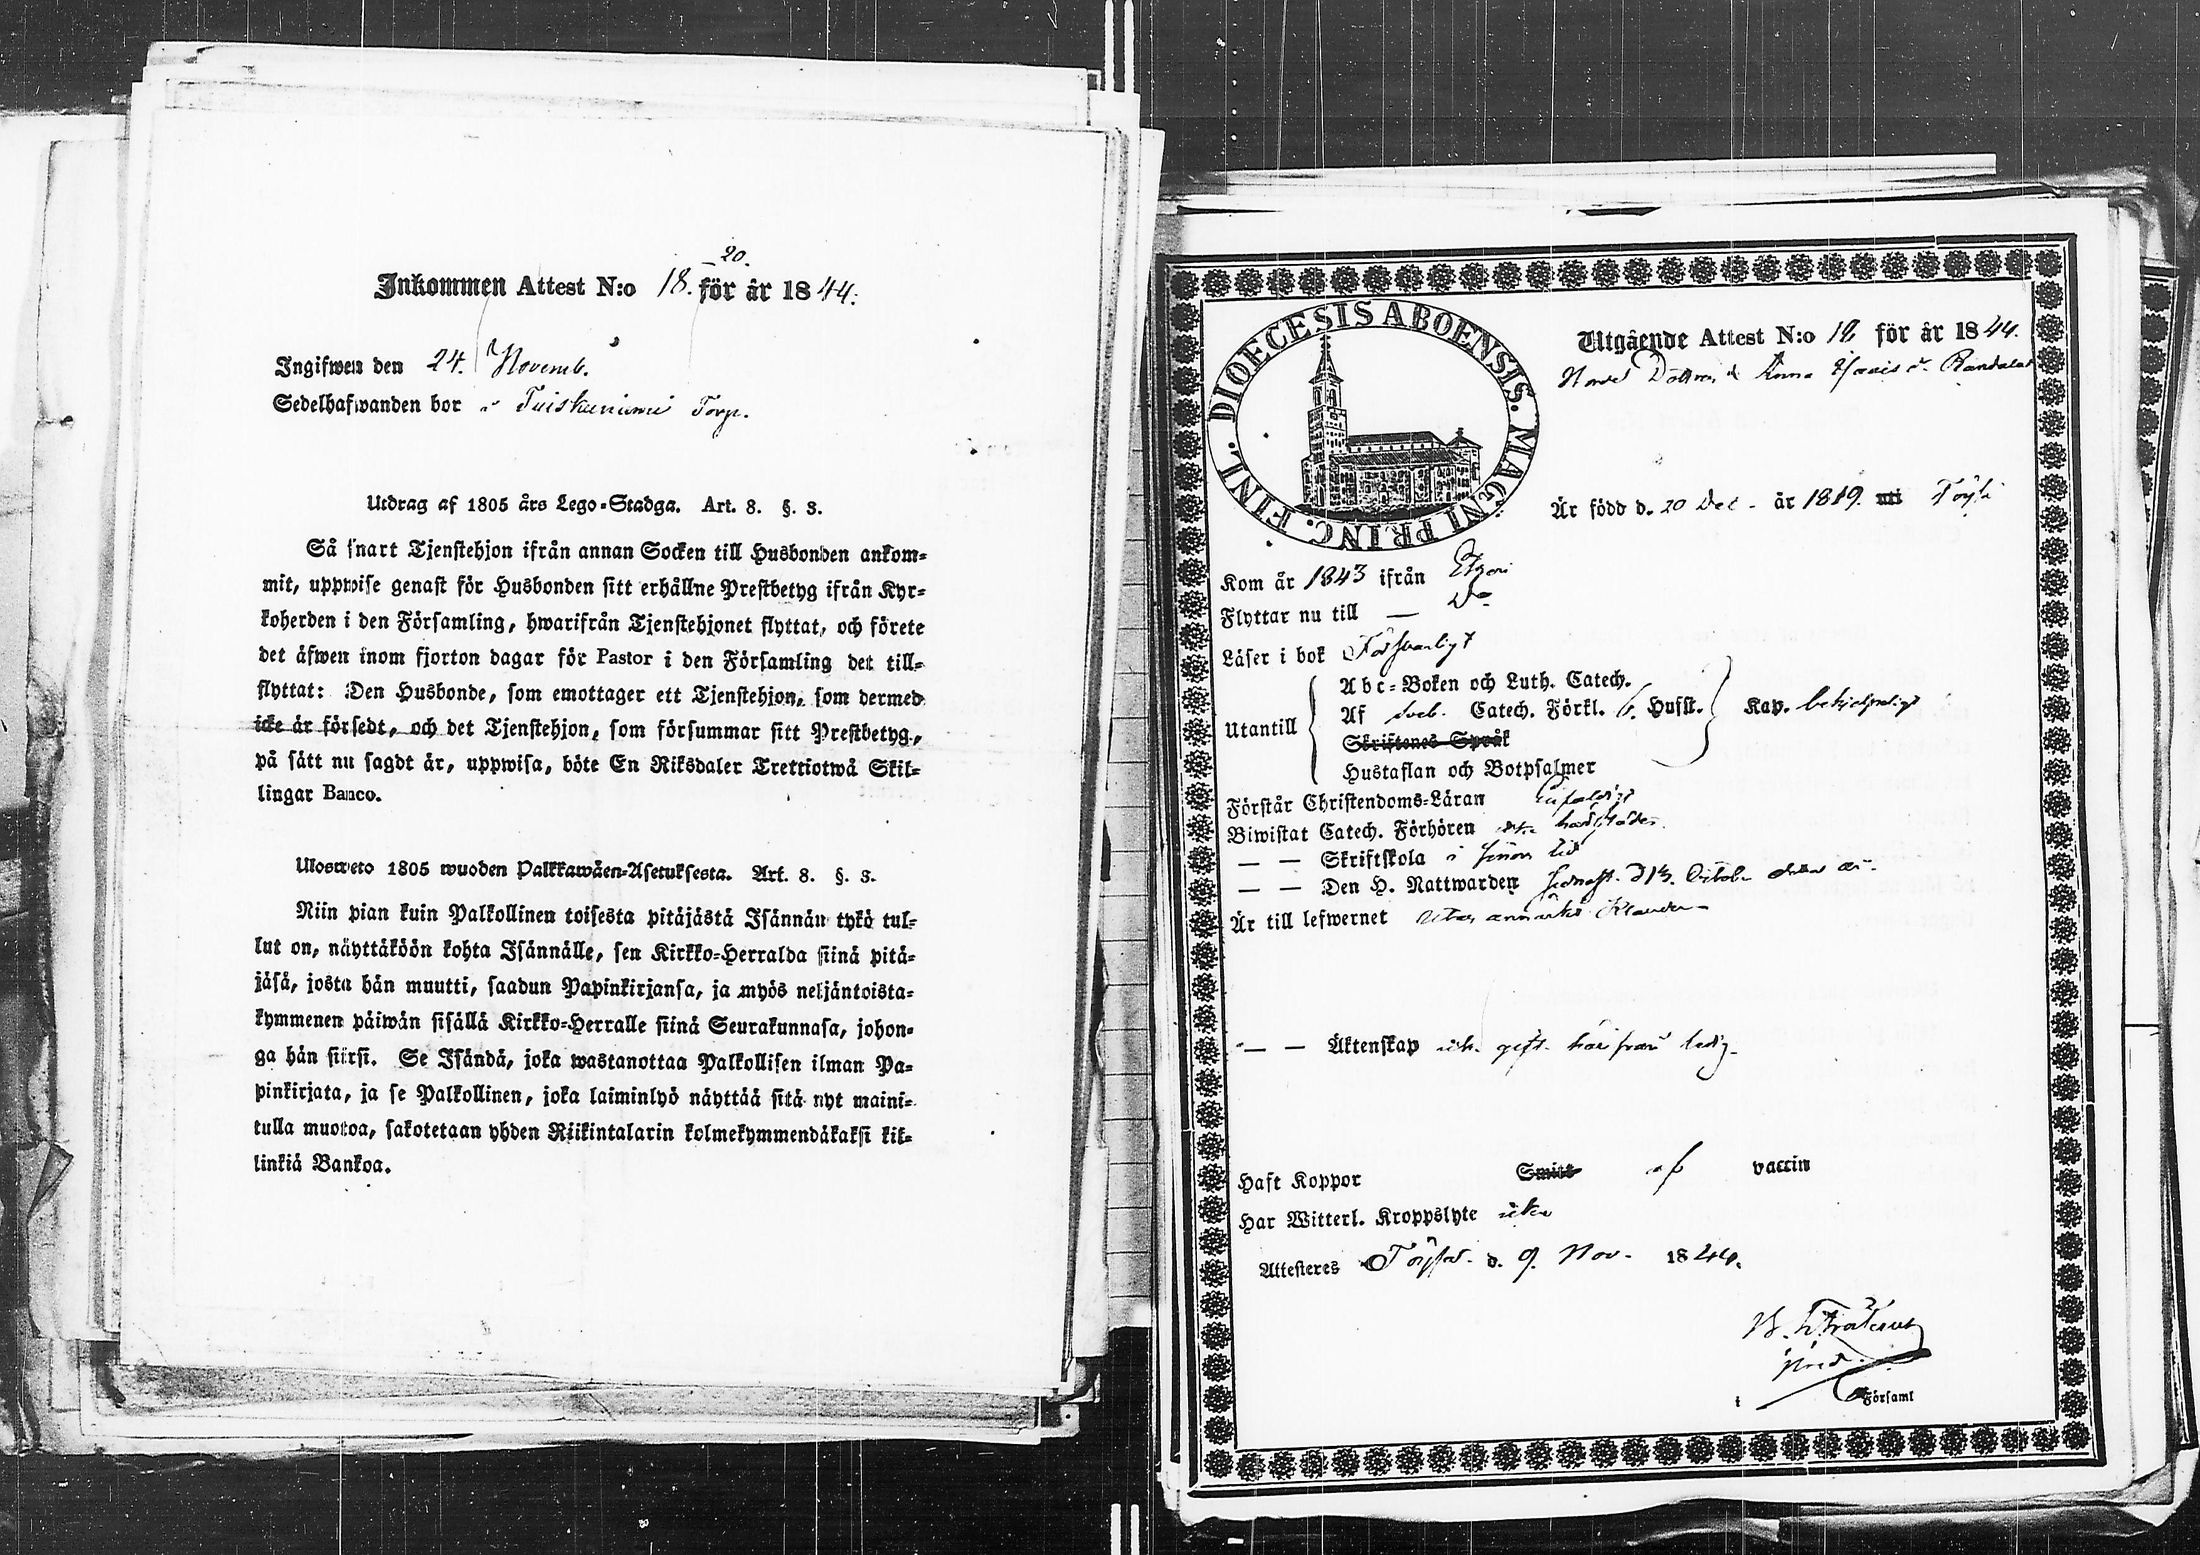 20.
Inkommen Attest N:o 18. för år 1844.
Ingifwen den 24. Novemb.
Sedelhafwanden bor Torp.
Utdrag af 1805 års Lego-Stadga. Art. 8. §. 3.
Så snart Tjenstehjon ifrån annan Socken till Husbonden ankom-
mit, uppwise genast för Husbonden sitt erhållne Prestbetyg ifrån Kyr-
koherden i den Församling, hwarifrån Tjenstehjonet flyttat, och förete
det äfwen inom fjorton dagar för Pastor i den Församling det till-
flyttat: Den Husbonde, som emottager ett Tjenstehjon, som dermed
icke är försedt, och det Tjenstehjon, som försummar sitt Prestbetyg,
på sätt nu sagdt är, uppwisa, böte En Riksdaler Trettiotwå Skil-
lingar Banco.
Ulosweto 1805 wuoden Palkkawäen-Asetuksesta. Art. 8. §. 3.
Niin pian kuin Palkollinen toisesta pitäjästä Isännän tykö tul-
lut on, näyttäköön kohta Isännälle, sen Kirkko-Herralda siinä pitä-
jäsä, josta hän muutti, saadun Papinkirjansa, ja myös neljäntoista-
kymmenen päiwän sisällä Kirkko-Herralle siinä Seurakunnasa, johon-
ga hän siirsi. Se Isändä, joka wastanottaa Palkollisen ilman Pa-
pinkirjata, ja se Palkollinen, joka laiminlyö näyttää sitä nyt maini-
tulla muotoa, sakotetaan yhden Riikintalarin kolmekymmendäkaksi kil-
linkiä Bankoa.
DIOECESIS ABOENSIS. MAGNI PRINC. FINL.
Utgående Attest N:o för år 1844.
Anna
Är född d. 20 Dec. år 1819. uti Töysä
Kom år 1843 ifrån Etseri
Flyttar nu till — Do
Läser i bok Försvarligt
Abc-Boken och Luth. Catech.
Utantill Af Sveb. Catech. Förkl. Hufst. Kap. behjelpeligt
Skriftenes Språk
Hustaflan och Botpsalmer
Förstår Christendoms-Läran Enfaldigt
Biwistat Catech. Förhören
— — Skriftskola i sinom tid
— — Den H. Nattwarden sednast d 13. October detta år.
Är till lefwernet utan anmärkt klander
— — Äktenskap icke gift härifrån ledig.
Haft Koppor Smitt af vaccin
Har Witterl. Kroppslyte icke
Attesteres Töysä d. 9. Nov. 1844.
i Församl